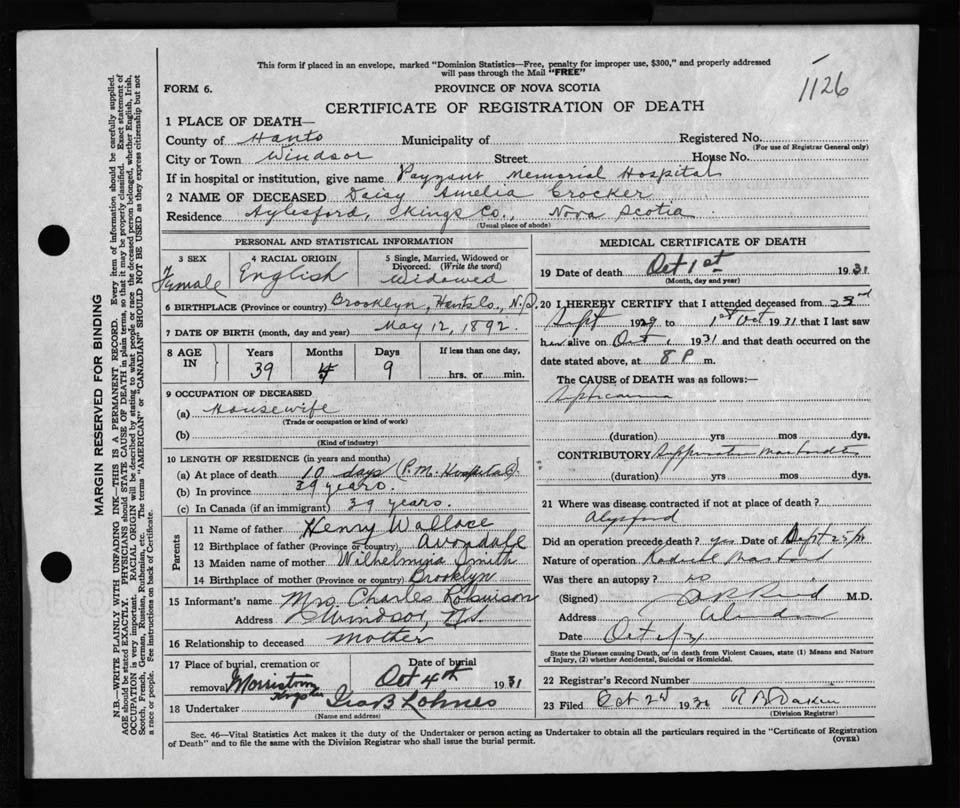 This form if placed in an envelope, marked "Dominion Statistics—Free, penalty for improper use, $300," and properly addressed
will pass through the Mail "FREE"
1126
FORM 6.
PROVINCE OF NOVA SCOTIA
CERTIFICATE OF REGISTRATION OF DEATH
1 PLACE OF DEATH—
County of Hants Municipality of Registered No.
(For use of Registrar General only)
City or Town Windsor Street House No.
If in hospital or institution, give name Payzant Memorial Hospital
2 NAME OF DECEASED Daisy Amelia Crocker
Residence Aylesford, Kings Co., Nova Scotia
(Usual place of abode)
PERSONAL AND STATISTICAL INFORMATION
3 SEX
Female
4 RACIAL ORIGIN
English
5 Single, Married, Widowed or
Divorced. (Write the word)
Widowed
6 BIRTHPLACE (Province or country) Brooklyn, Hants Co., N.S.
7 DATE OF BIRTH (month, day and year) May 12, 1892.
8 AGE IN
Years Months Days If less than one day,
39 9 hrs. or min.
9 OCCUPATION OF DECEASED
(a) Housewife
(Trade or occupation or kind of work)
(b)
(Kind of industry)
10 LENGTH OF RESIDENCE (in years and months)
(a) At place of death 10 days (P.M. Hospital).
(b) In province 39 years.
(c) In Canada (if an immigrant) 39 years.
Parents
11 Name of father Henry Wallace
12 Birthplace of father (Province or country) Avondale
13 Maiden name of mother Wilhelmina Smith
14 Birthplace of mother (Province or country) Brooklyn
15 Informant's name Mrs. Charles Robinson
Address Windsor, N.S.
16 Relationship to deceased Mother
17 Place of burial, cremation or Date of burial
removal Morristown Oct 4th 1931
18 Undertaker Geo B Lohnes
(Name and address)
MEDICAL CERTIFICATE OF DEATH
19 Date of death Oct 1st 1931
(Month, day and year)
20 I HEREBY CERTIFY that I attended deceased from 23rd
Sept 1929 to 1st Oct 1931 that I last saw
her alive on Oct 1 1931 and that death occurred on the
date stated above, at 8 P. m.
The CAUSE of DEATH was as follows:—
(duration) yrs mos dys.
CONTRIBUTORY
(duration) yrs mos dys.
21 Where was disease contracted if not at place of death?
Did an operation precede death? yes Date of Sept
Nature of operation
Was there an autopsy? no
(Signed) M.D.
Address
Date Oct
State the Disease causing Death, or in death from Violent Causes, state (1) Means and
Nature of Injury, (2) whether Accidental, Suicidal or Homicidal.
22 Registrar's Record Number
23 Filed Oct 2d 193
(Division Registrar)
Sec. 46—Vital Statistics Act makes it the duty of the Undertaker or person acting as Undertaker to obtain all the particulars required in the "Certificate of Registration
of Death" and to file the same with the Division Registrar who shall issue the burial permit.
(OVER)
MARGIN RESERVED FOR BINDING
N.B.—WRITE PLAINLY WITH UNFADING INK—THIS IS A PERMANENT RECORD. Every item of information should be carefully supplied.
AGE should be stated EXACTLY. PHYSICIANS should STATE CAUSE OF DEATH in plain terms, so that it may be properly classified. Exact statement of
OCCUPATION is very important. RACIAL ORIGIN will be described by stating to what people or race the deceased person belonged, whether English, Irish,
Scotch, French, German, Russian, Ruthenian, etc. The terms "AMERICAN" or "CANADIAN" SHOULD NOT BE USED as they express citizenship but not
a race or people. See instructions on back of Certificate.